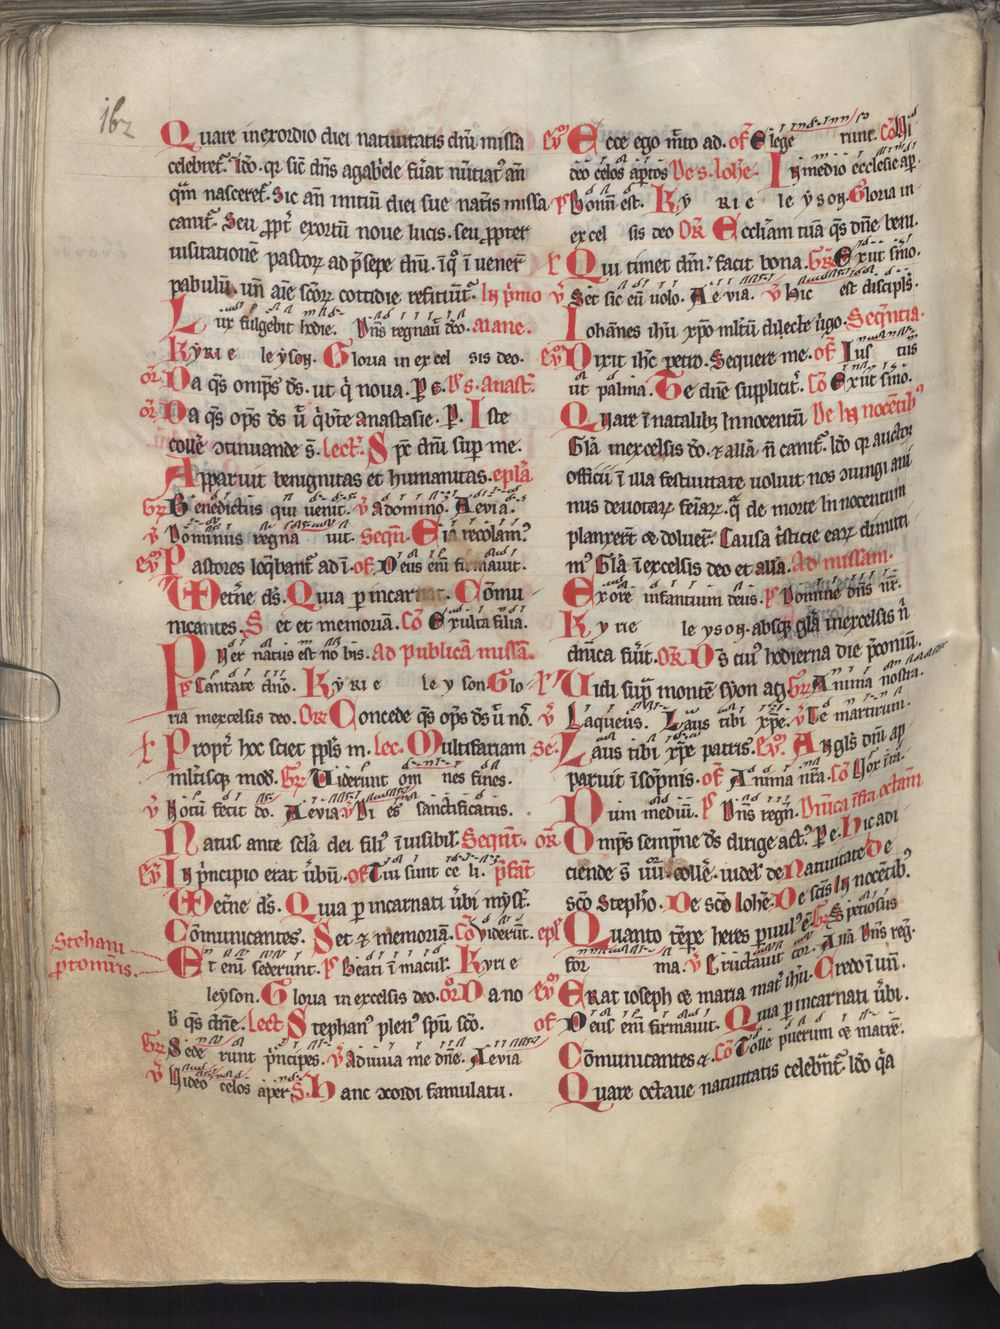 162
Quare inexordio diei natiuitatis dñi missa
celebret᷑. Ideo. qꝛ sic dñs agabele fuerat nũtiat᷒ añ
qm̃ nasceret᷑. Sic añ initiũ diei sue natis missa
canit᷑. Seu ꝓpt̃ exortũ noue lucis. seu ꝓpter
uisitationẽ pastoꝝ ad p̃sepe dñi. ĩ q° ĩ uener̃
pabulũ. uñ aĩe scõꝝ cottidie reficiũt᷑. In p̃mo
Lux fulgebit hodie. Dñs regnau᷑ deo. mane.
Kyrie leyson. Gloria in excel sis deo.
oꝛ̃ Da qs omp̃s ds. ut q̇ noua. P e. De s. anast᷑.
oꝛ̃ Da qs op̃s ds ũ q̇bᷤte anastasie. P. Iste
Lect᷑. Spc̃ dñi sup me.
Apparuit benignitas et humanitas. eplã
Gr̃ Benedictus qui uenit. ℣ A domino. Aeuia.
℣ Dominus regna uit. Seqũ. Eia recolam᷒
eṽ Pastores loq̃bant᷑ ad ĩ. of Deus eñi firmauit.
Wet̃ne ds. Quia p incarnat. Cõmu
nicantes. Set et memoriã. Cõ Exulta filia.
Pver natus est no bis. Ad publicã missã.
Ps Cantate dño. Kyrie leyson. Glo
ria inexcelsis deo. Oꝛ̃ Concede qs op̃s ds ũ nõ.
Ꝓpt̃ hoc sciet ppls m. lec. Multifariam
mltisq; mod. Gr̃ Viderunt om nes fines.
℣ Notũ fecit do. Aeuia ℣ Di es sanctificatus.
Natus ante sclã dei fili᷒ ĩuisibil. Sequnt.
eṽ In p̃ncipio erat u̇bũ. of Tui sunt ce li. p̃fat
Wet̃ne ds. Quia p incarnati u̇bi myst᷑.
Cõmunicantes. Set ⁊ memoriã. Cõ Viderũt.
Stehani
ꝓtom̃ris.
Et eñi sederunt. ps Beati ĩ macul. Kyrie
leyson. Gloria in excelsis deo. oꝛ̃ Da no
b qs dñe. Lect Stephan᷒ plen᷒ spũ sco.
Gr̃ Sede runt p̃ncipes. ℣ Adiuua me dñe. Aeuia
℣ Video celos aper S. Hanc xordi famulatu.
eṽ Ecce ego mito ad. of Elege runt. Cõ Vi
deo celos aptos De s. Iohe. In medio ecclesie ap.
ps Bonũ est. Kyrie leyson. Gloria in
excel sis deo Oꝛ̃ Eccliam tuã qs dñe beni.
Qui timet dm̃. facit bona. Gr̃ Exiit smo.
℣ Set sic eũ uolo. Aeuia. ℣ Hic est discipls.
Iohãnes ihu xpo mltũ dilecte uᷣgo. Seqñtia.
eṽ Dixit ihc petro. Sequere me. of Ius tus
ut palma. Te dñe supplicit᷑. Cõ Exiit smo.
Quare ĩ natalibᷤ Innocentũ De In nocentibᷤ
Glã inexcelsis do. ⁊ allã ñ canit᷑. Ideo qꝛ auctoꝛ
officii ĩ illa festiuitate uoluit nos ꝯiungi ani
mis deuotaꝝ feĩaꝝ. q̃ de morte Innocentum
planxert᷑ ⁊ doluert᷑. Causa t̃sticie eaꝝ dimitti
m᷒ Glã ĩ excelsis deo et allã. Ad missam.
Ex ore infantium deus. ps Domine dñs nr̃.
Kyrie leyson. absq; glã inexcelsis ñ
dñica fuit᷑. Oꝛ̃ Ds cui᷒ hodierna die p̃coniũ.
Uidi sup montẽ syon ag Gr̃ Anima nostra.
℣ Laqueus. Laus tibi xp̃e. ℣ Te martirum.
se. Laus tibi xp̃e patris. eṽ. Angls dñi ap
paruit ĩ sõpnis. of Anima nr̃a. Cõ Vox ĩ rã.
Dum mediũ. ps Dñs regn. Dñica infra octauam
oꝛ̃ Omps sempit̃ne ds dirige act᷒. P e. Hic adi
ciende s. colle. uidel᷑ de Natiuitate De
sco Stepho. De sco Iohe. De scis In nocentibᷤ.
epl Quanto tẽpe heres puul᷒ ẽ. Gr̃ Speciosus
for ma. ℣ Eructauit cor. Allã Dñs reg.
eṽ Erat ioseph ⁊ maria mat̃ ihu. Credo ĩ uñ.
of Deus eñi firmauit. Quia p incarnati u̇bi.
Cõmunicantes ⁊. Cõ Tolle puerum ⁊ matrẽ.
Quare octaue natiuitatis celebnt᷑. Ideo q̇a